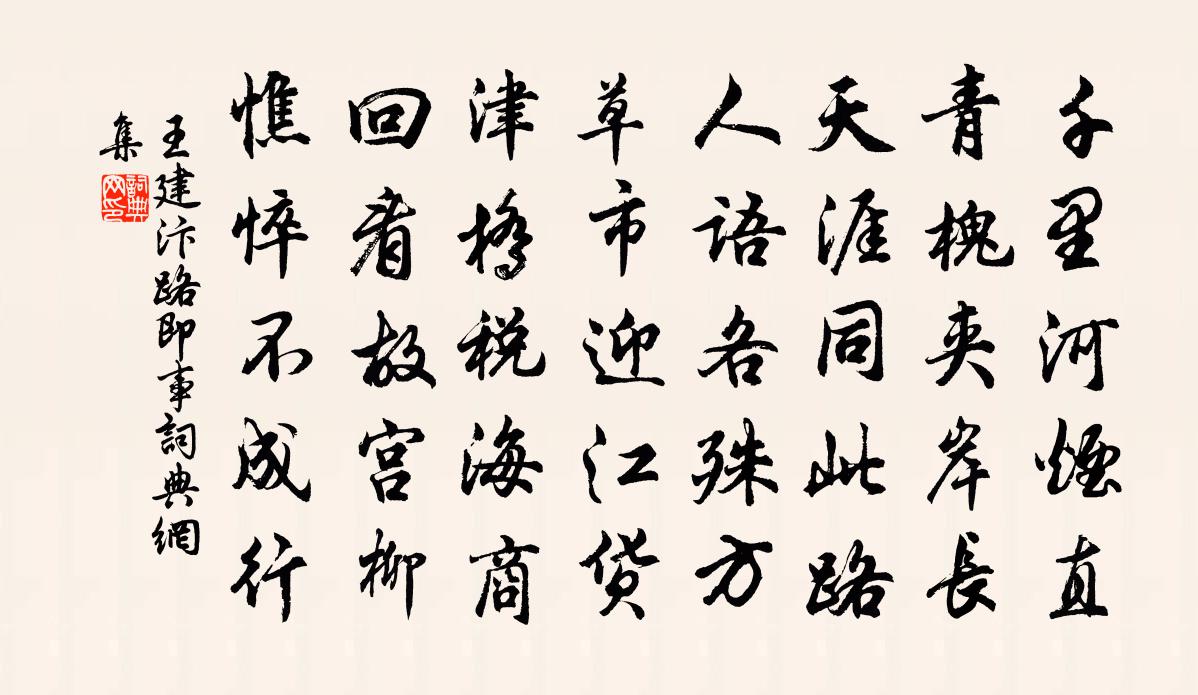 千里河煙直
青槐夾岸長
天涯同此路
人語各殊方
草市迎江貨
津橋稅海商
回看故宮柳
憔悴不成行
王建汴路即事詞典網
集
詞典網印